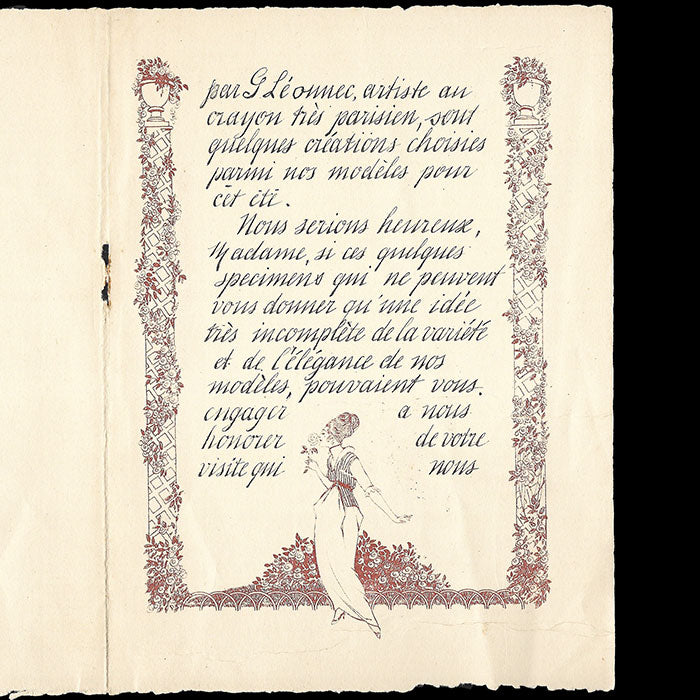 par G Léonnec, artiste au
crayon très parisien, sont
quelques créations choisies
parmi nos modèles pour
cet été.
Nous serions heureux,
Madame, si ces quelques
specimens qui ne peuvent
vous donner qu'une idée
très incomplète de la variété
et de l'élégance de nos
modèles, pouvaient vous
engager a nous
honorer de votre
visite qui nous